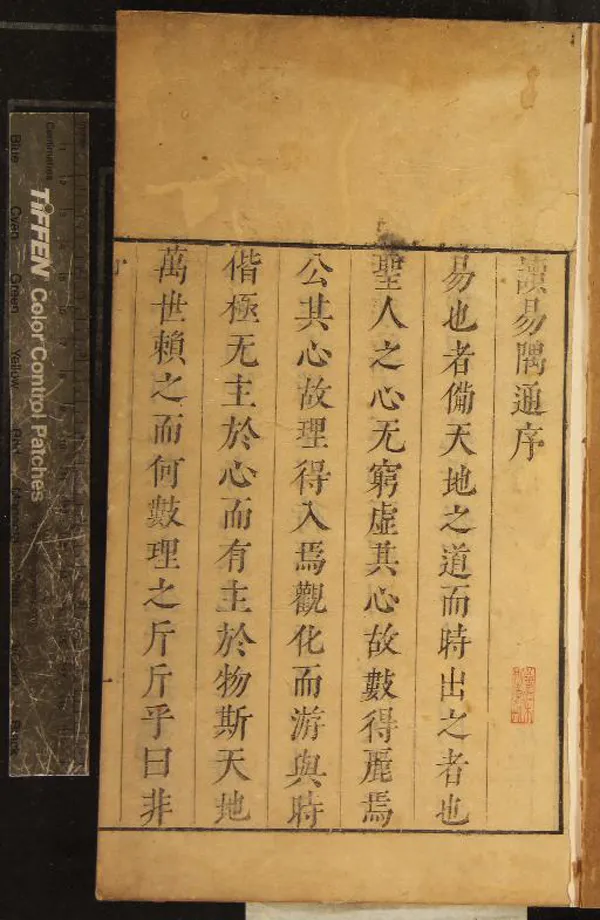 讀易隅通序
易也者備天地之道而時出之者也
聖人之心无窮虛其心故數得麗焉
公其心故理得入焉觀化而游與時
偕極无主於心而有主於物斯天地
萬世賴之而何數理之斤斤乎曰非
TIFFEN Color Control Patches
Centimetres
Blue
Cyan
Green
Yellow
Red
Magenta
Black